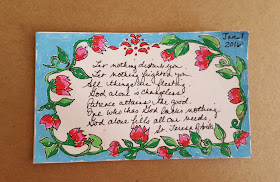 Jan 1
2016
Let nothing disturb you
Let nothing frighten you
All things are fleeting
God alone is changeless
Patience attains the good.
One who has God lacks nothing
God alone fills all our needs.
St. Teresa